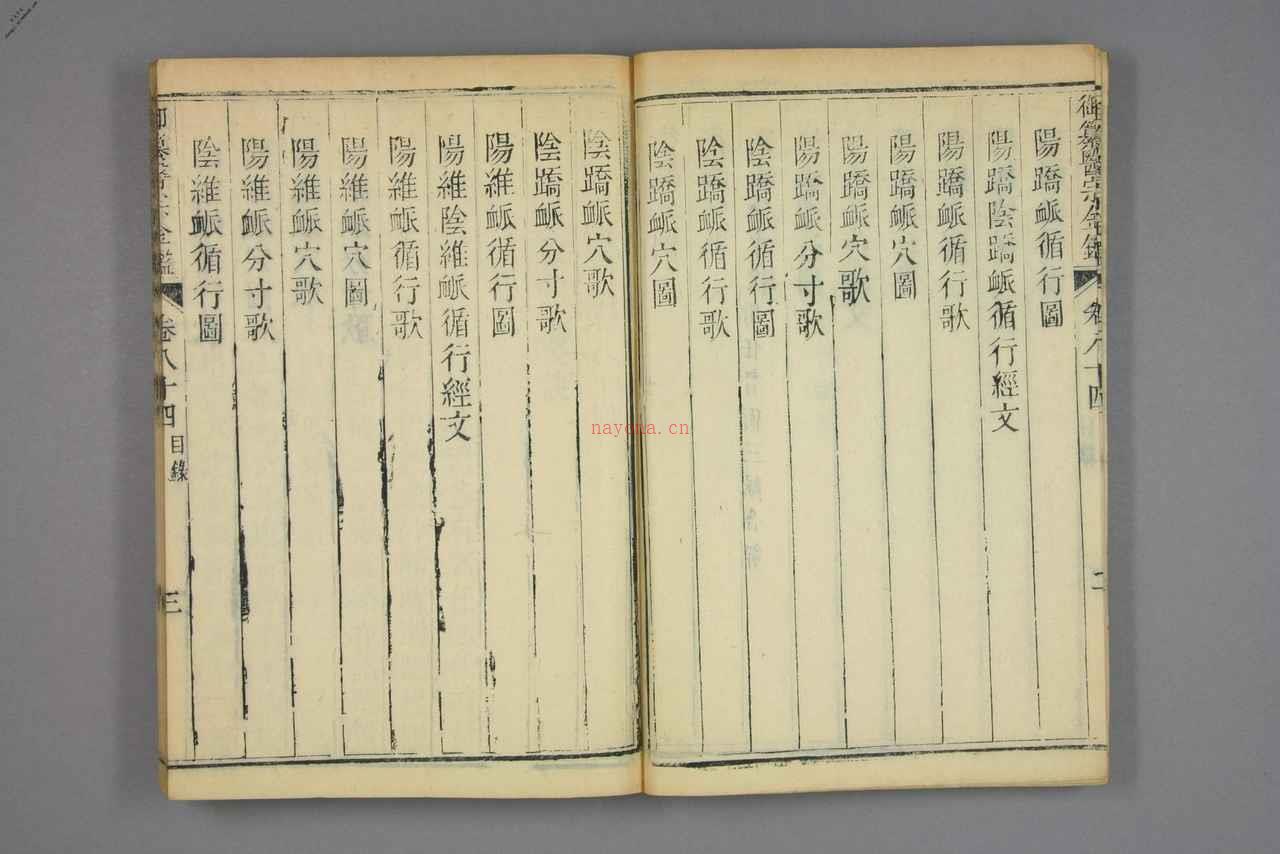 御纂醫宗金鑑 卷八十四 二
陽蹻衇循行圖
陽蹻陰蹻衇循行經文
陽蹻衇循行歌
陽蹻衇穴圖
陽蹻衇穴歌
陽蹻衇分寸歌
陰蹻衇循行圖
陰蹻衇循行歌
陰蹻衇穴圖
陰蹻衇穴歌
陰蹻衇分寸歌
陽維衇循行圖
陽維陰維衇循行經文
陽維衇循行歌
陽維衇穴圖
陽維衇穴歌
陽維衇分寸歌
陰維衇循行圖
御纂醫宗金鑑 卷八十四 目錄 三
nayona.cn